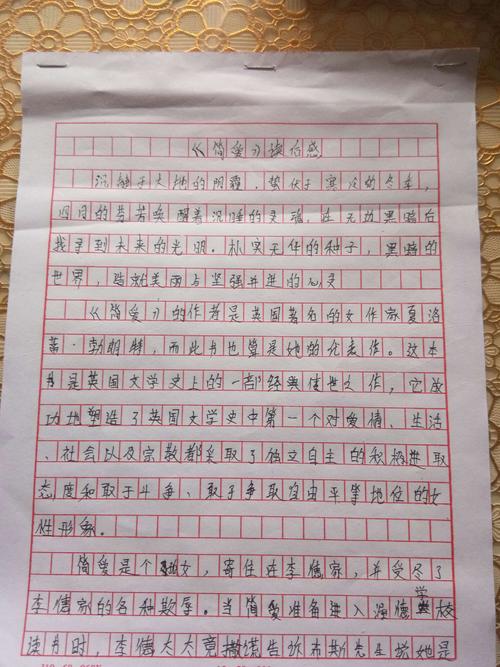 《简爱》读后感
沉触于大地的阴霾，蛰伏于寒冷的冬季，
四月的芳若唤醒着沉睡的灵魂，在无边黑暗后
我寻到未来的光明。朴实无华的种子，黑暗的
世界，造就美丽与坚强并进的心灵
《简爱》的作者是英国著名的女作家夏洛
蒂·勃朗特，而此书也算是她的代表作。这本
书是英国文学史上的一部经典传世之作，它成
功地塑造了英国文学史中第一个对爱情、生活
、社会以及宗教都采取了独立自主的积极进取
态度和敢于斗争、敢于争取自由平等地位的女
性形象。
简爱是个女，寄住在李德家，并受尽了
李德家的各种欺辱。当简爱准备进入温德学校
读书时，李德太太竟撒谎告诉布斯先生说她是